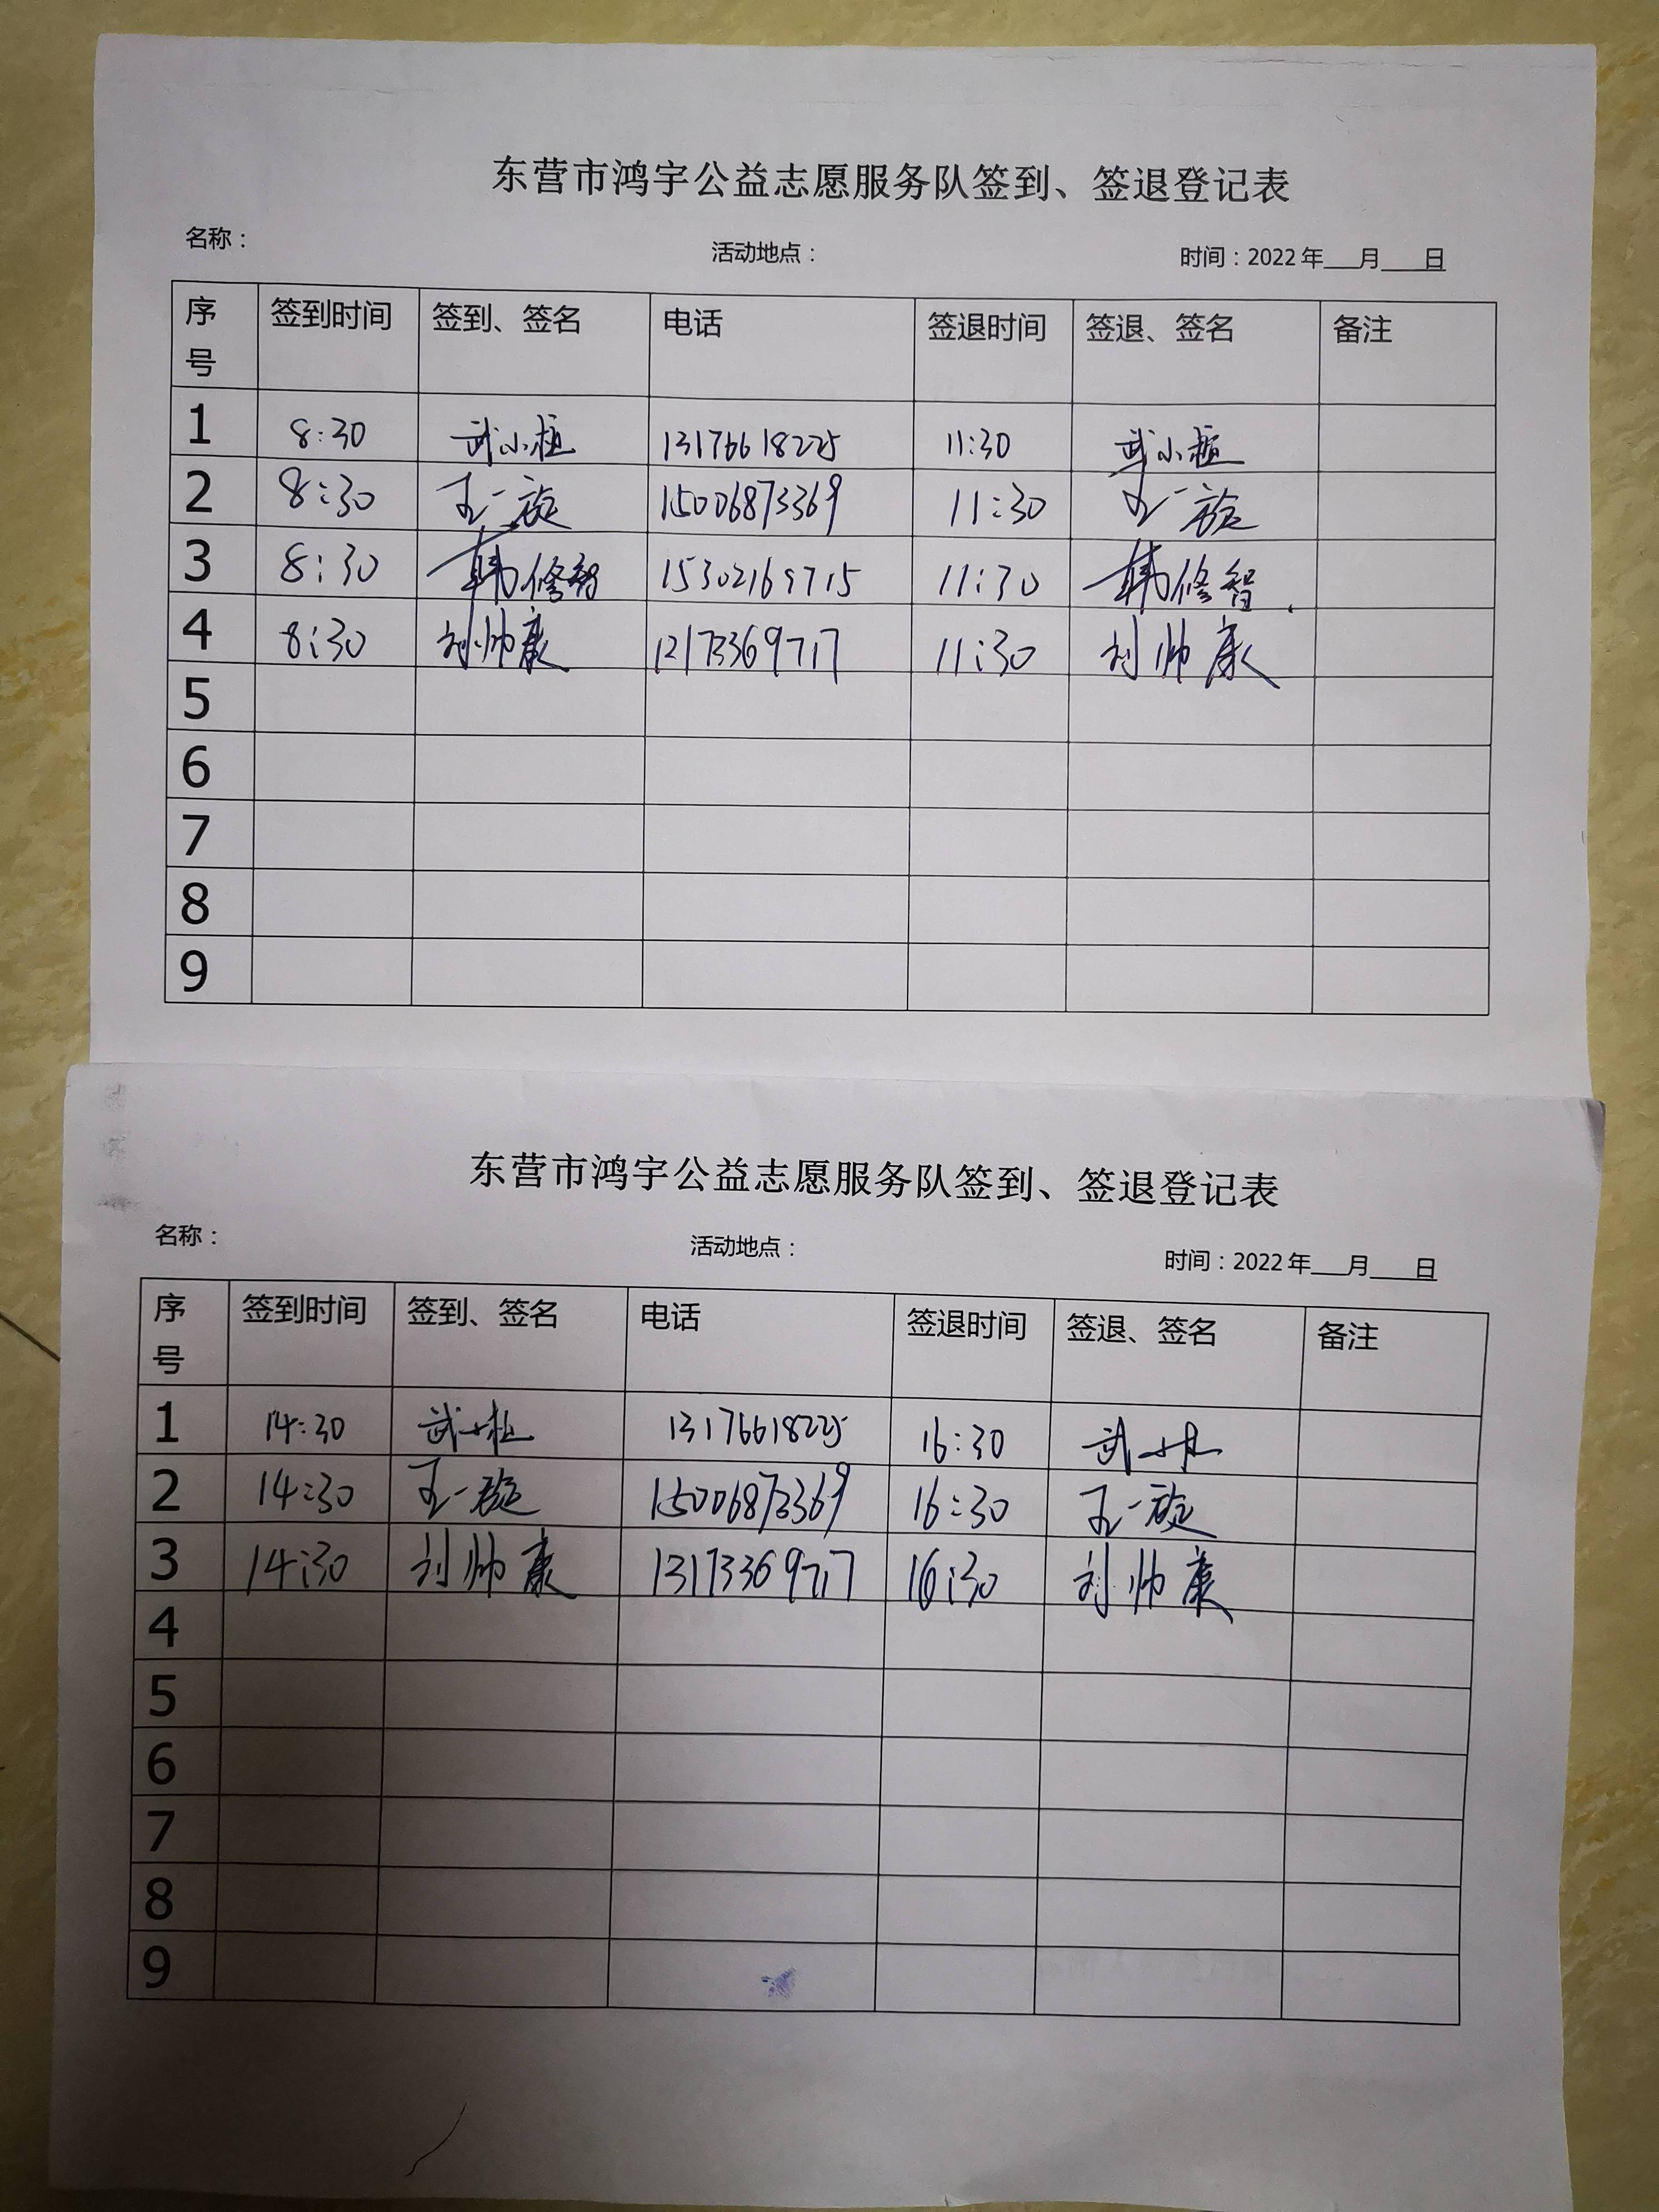 东营市鸿宇公益志愿服务队签到、签退登记表
名称： 活动地点： 时间：2022年___月___日
序号 签到时间 签到、签名 电话 签退时间 签退、签名 备注
1 8:30 武小 13176618225 11:30 武小
2 8:30 王一旋 15006873369 11:30 王一旋
3 8:30 韩修智 15302169715 11:30 韩修智
4 8:30 刘帅康 12173369717 11:30 刘帅康
5
6
7
8
9
东营市鸿宇公益志愿服务队签到、签退登记表
名称： 活动地点： 时间：2022年___月___日
序号 签到时间 签到、签名 电话 签退时间 签退、签名 备注
1 14:30 武小 13176618225 16:30 武小
2 14:30 王一旋 15006873369 16:30 王一旋
3 14:30 刘帅康 13173369717 16:30 刘帅康
4
5
6
7
8
9